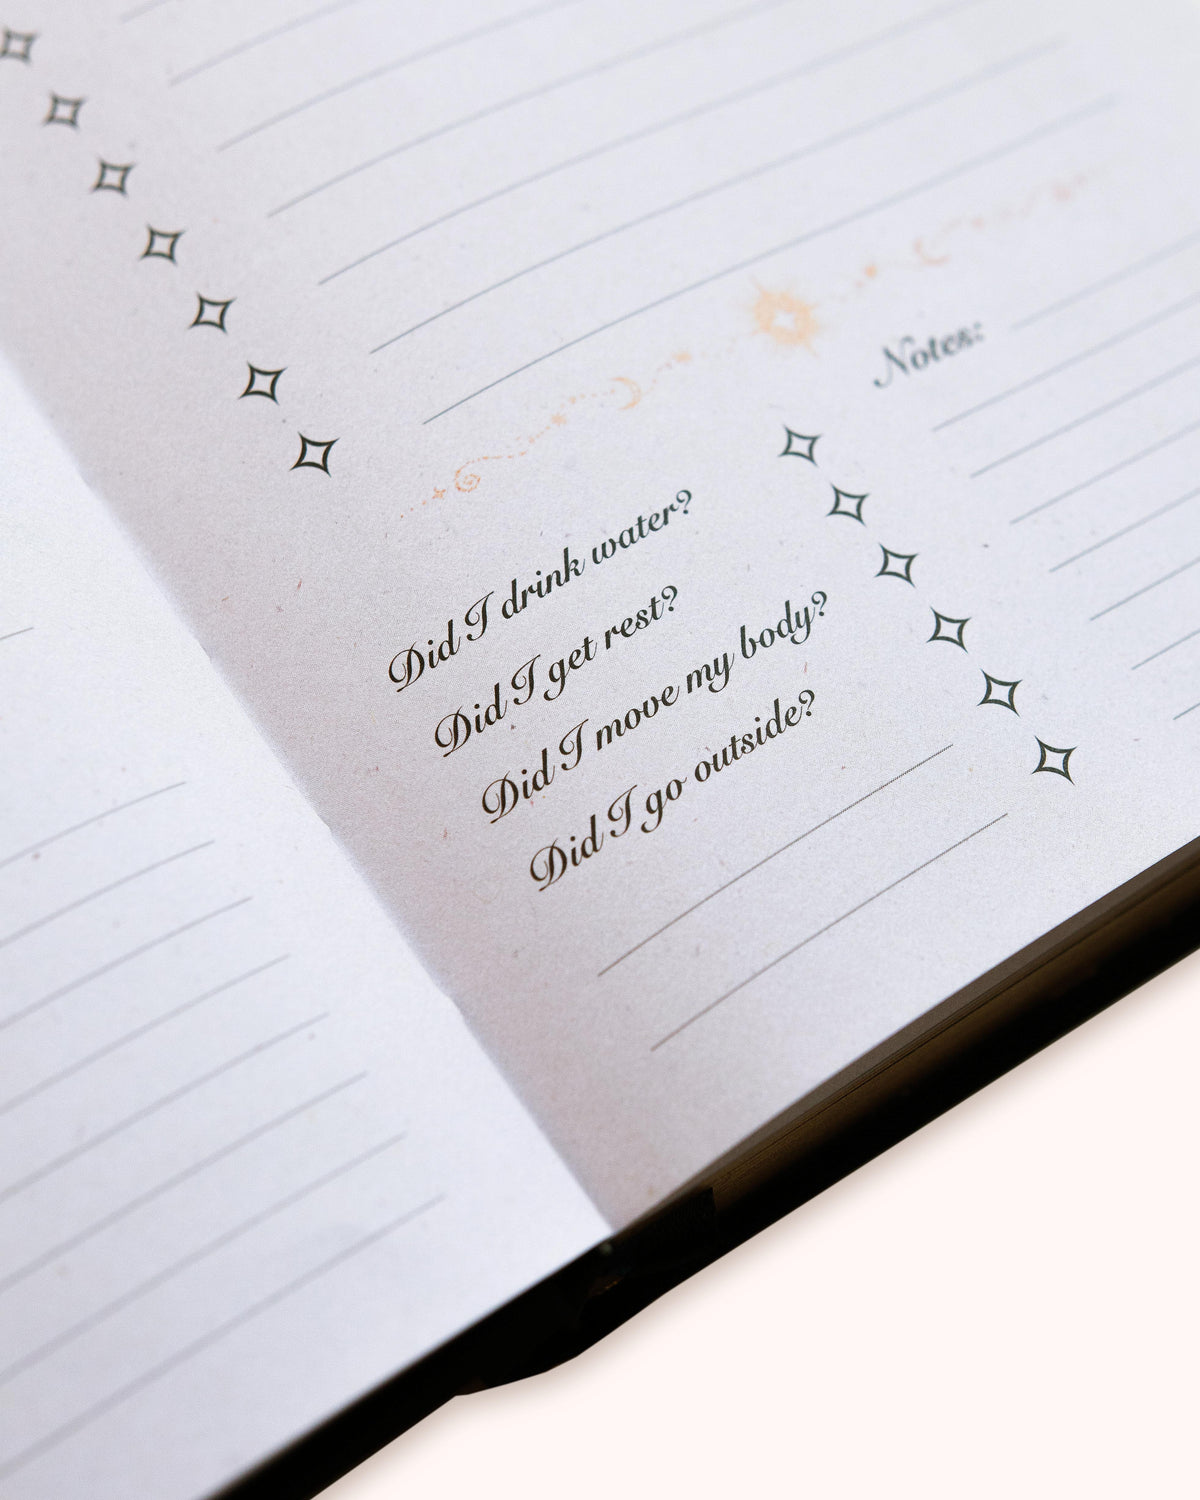 Notes:
Did I drink water?
Did I get rest?
Did I move my body?
Did I go outside?